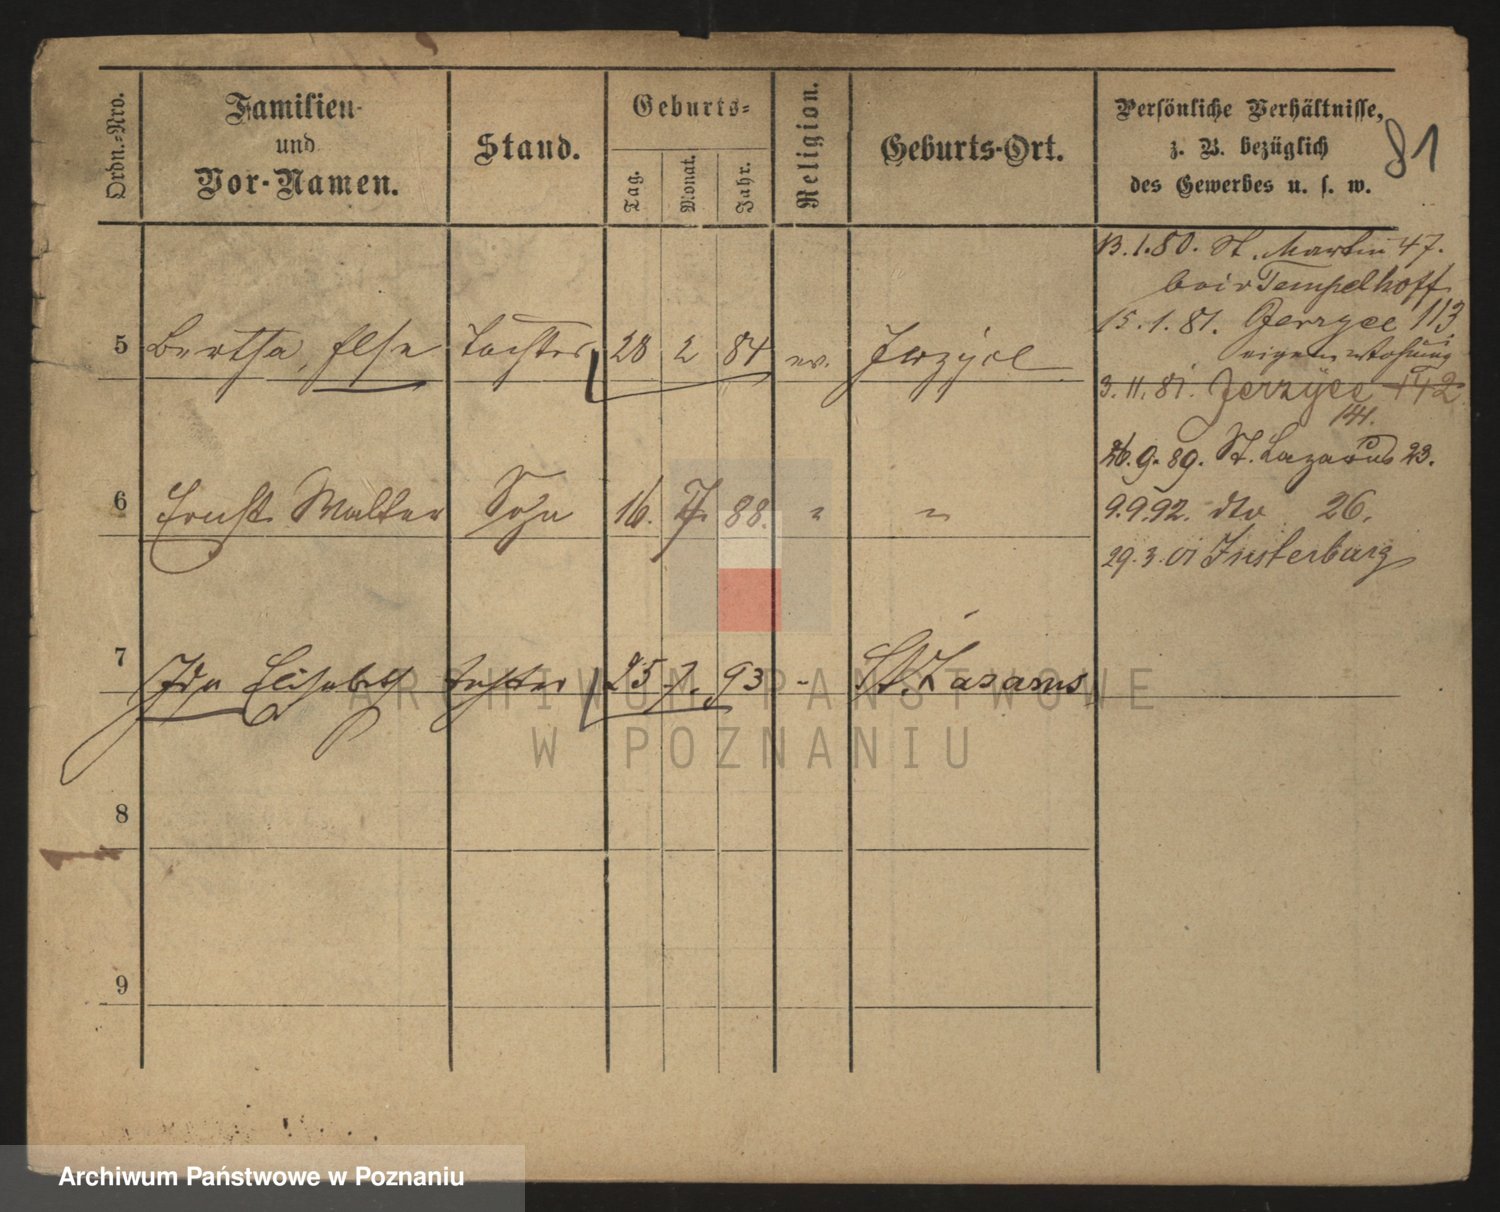 Ordn.-Nro.
Familien-
und
Vor-Namen.
Stand.
Geburts-
Tag.
Monat.
Jahr.
Religion.
Geburts-Ort.
Persönliche Verhältnisse,
z. B. bezüglich
des Gewerbes u. s. w.
81
5 Bertha, Else Tochter 28 2 84 ev. Jerzyce
6 Ernst Walter Sohn 16. 7. 88. " "
7 Ida Elisabeth Tochter 25 7. 93 - St. Lazarus
8
9
13.1.80. St. Martin 47.
bei Tempelhoff
15.1.81. Jerzyce 113.
eigene Wohnung
3.11.81. Jerzyce 112
141.
26.9.89. St. Lazarus 23.
9.9.92. dto 26.
29.3.01 Insterburg
ARCHIWUM PAŃSTWOWE
W POZNANIU
Archiwum Państwowe w Poznaniu